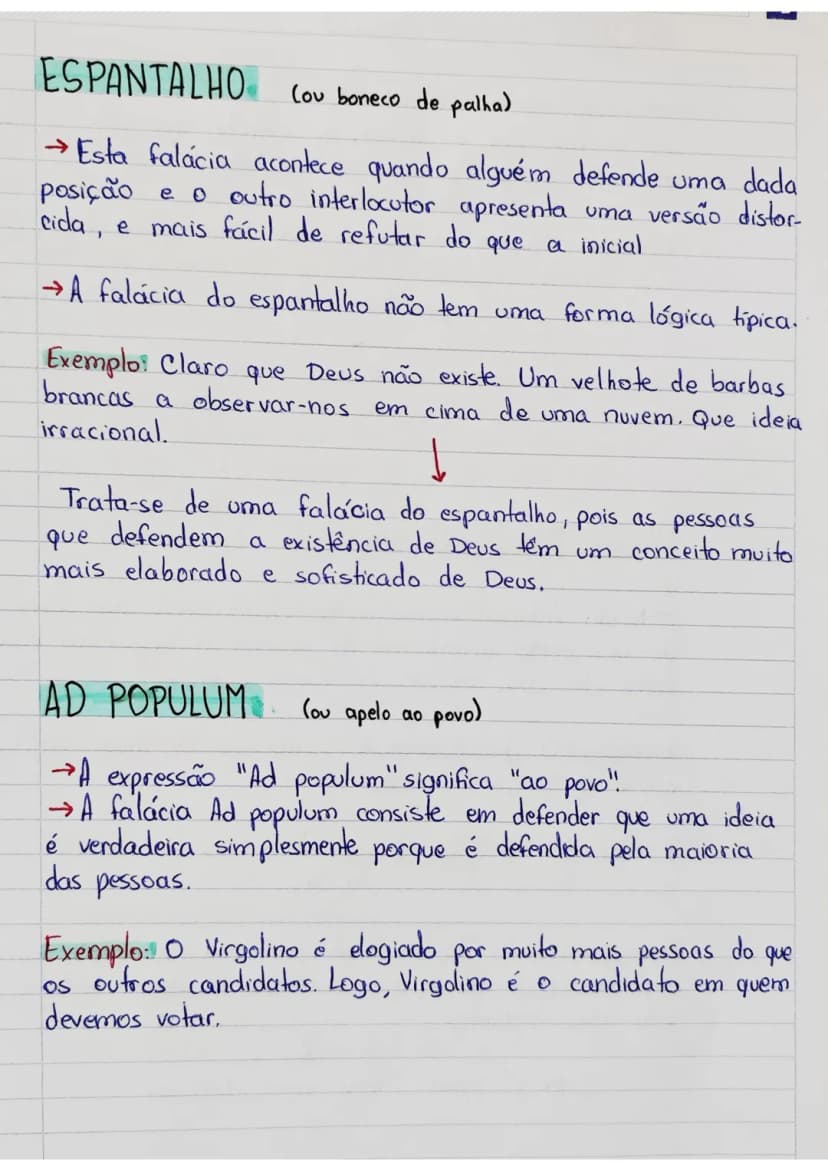 ESPANTALHO (ou boneco de palha)
→ Esta falácia acontece quando alguém defende uma dada
posição e o outro interlocutor apresenta uma versão distor-
cida, e mais fácil de refutar do que a inicial
→ A falácia do espantalho não tem uma forma lógica típica.
Exemplo: Claro que Deus não existe. Um velhote de barbas
brancas a observar-nos em cima de uma nuvem. Que ideia
irracional.
↓
Trata-se de uma falácia do espantalho, pois as pessoas
que defendem a existência de Deus têm um conceito muito
mais elaborado e sofisticado de Deus.
AD POPULUM (ou apelo ao povo)
→ A expressão "Ad populum" significa "ao povo".
→ A falácia Ad populum consiste em defender que uma ideia
é verdadeira simplesmente porque é defendida pela maioria
das pessoas.
Exemplo: O Virgolino é elogiado por muito mais pessoas do que
os outros candidatos. Logo, Virgolino é o candidato em quem
devemos votar.